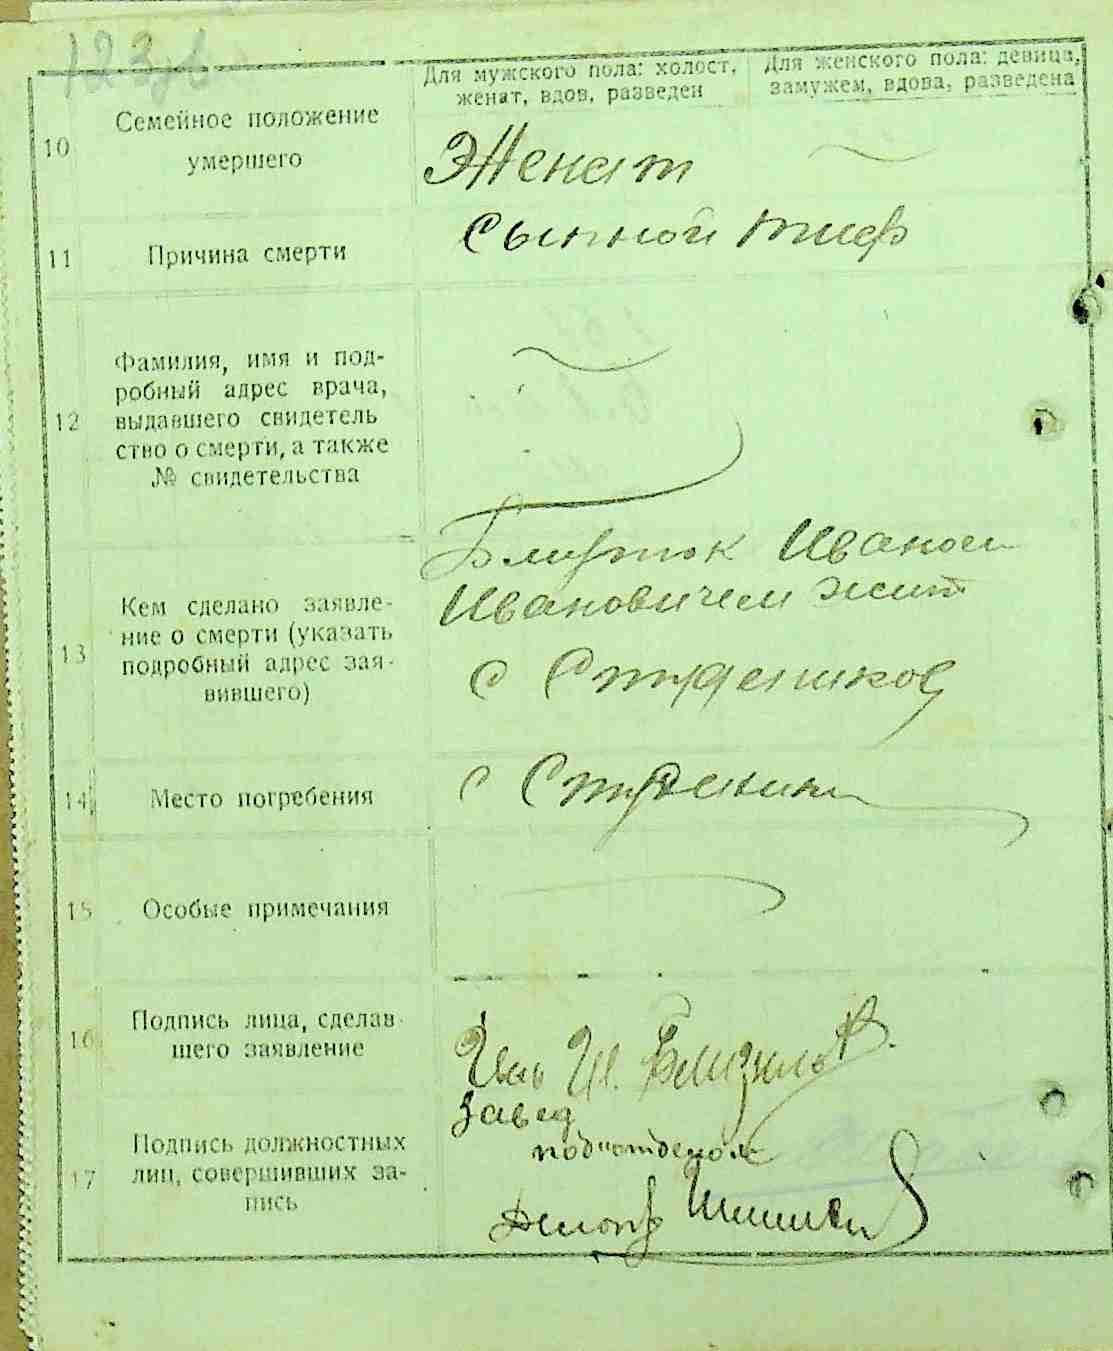 Для мужского пола: холост,
женат, вдов, разведен
Для женского пола: девица,
замужем, вдова, разведена
10
Семейное положение
умершего
Женат
11
Причина смерти
Сыпной тиф
12
Фамилия, имя и под-
робный адрес врача,
выдавшего свидетель
ство о смерти, а также
№ свидетельства
13
Кем сделано заявле-
ние о смерти (указать
подробный адрес зая-
вившего)
Иваном
Ивановичем жит
с
14
Место погребения
с
15
Особые примечания
16
Подпись лица, сделав-
шего заявление
Ив.
17
Подпись должностных
лиц, совершивших за-
пись
Завед
подотделом
Делопр